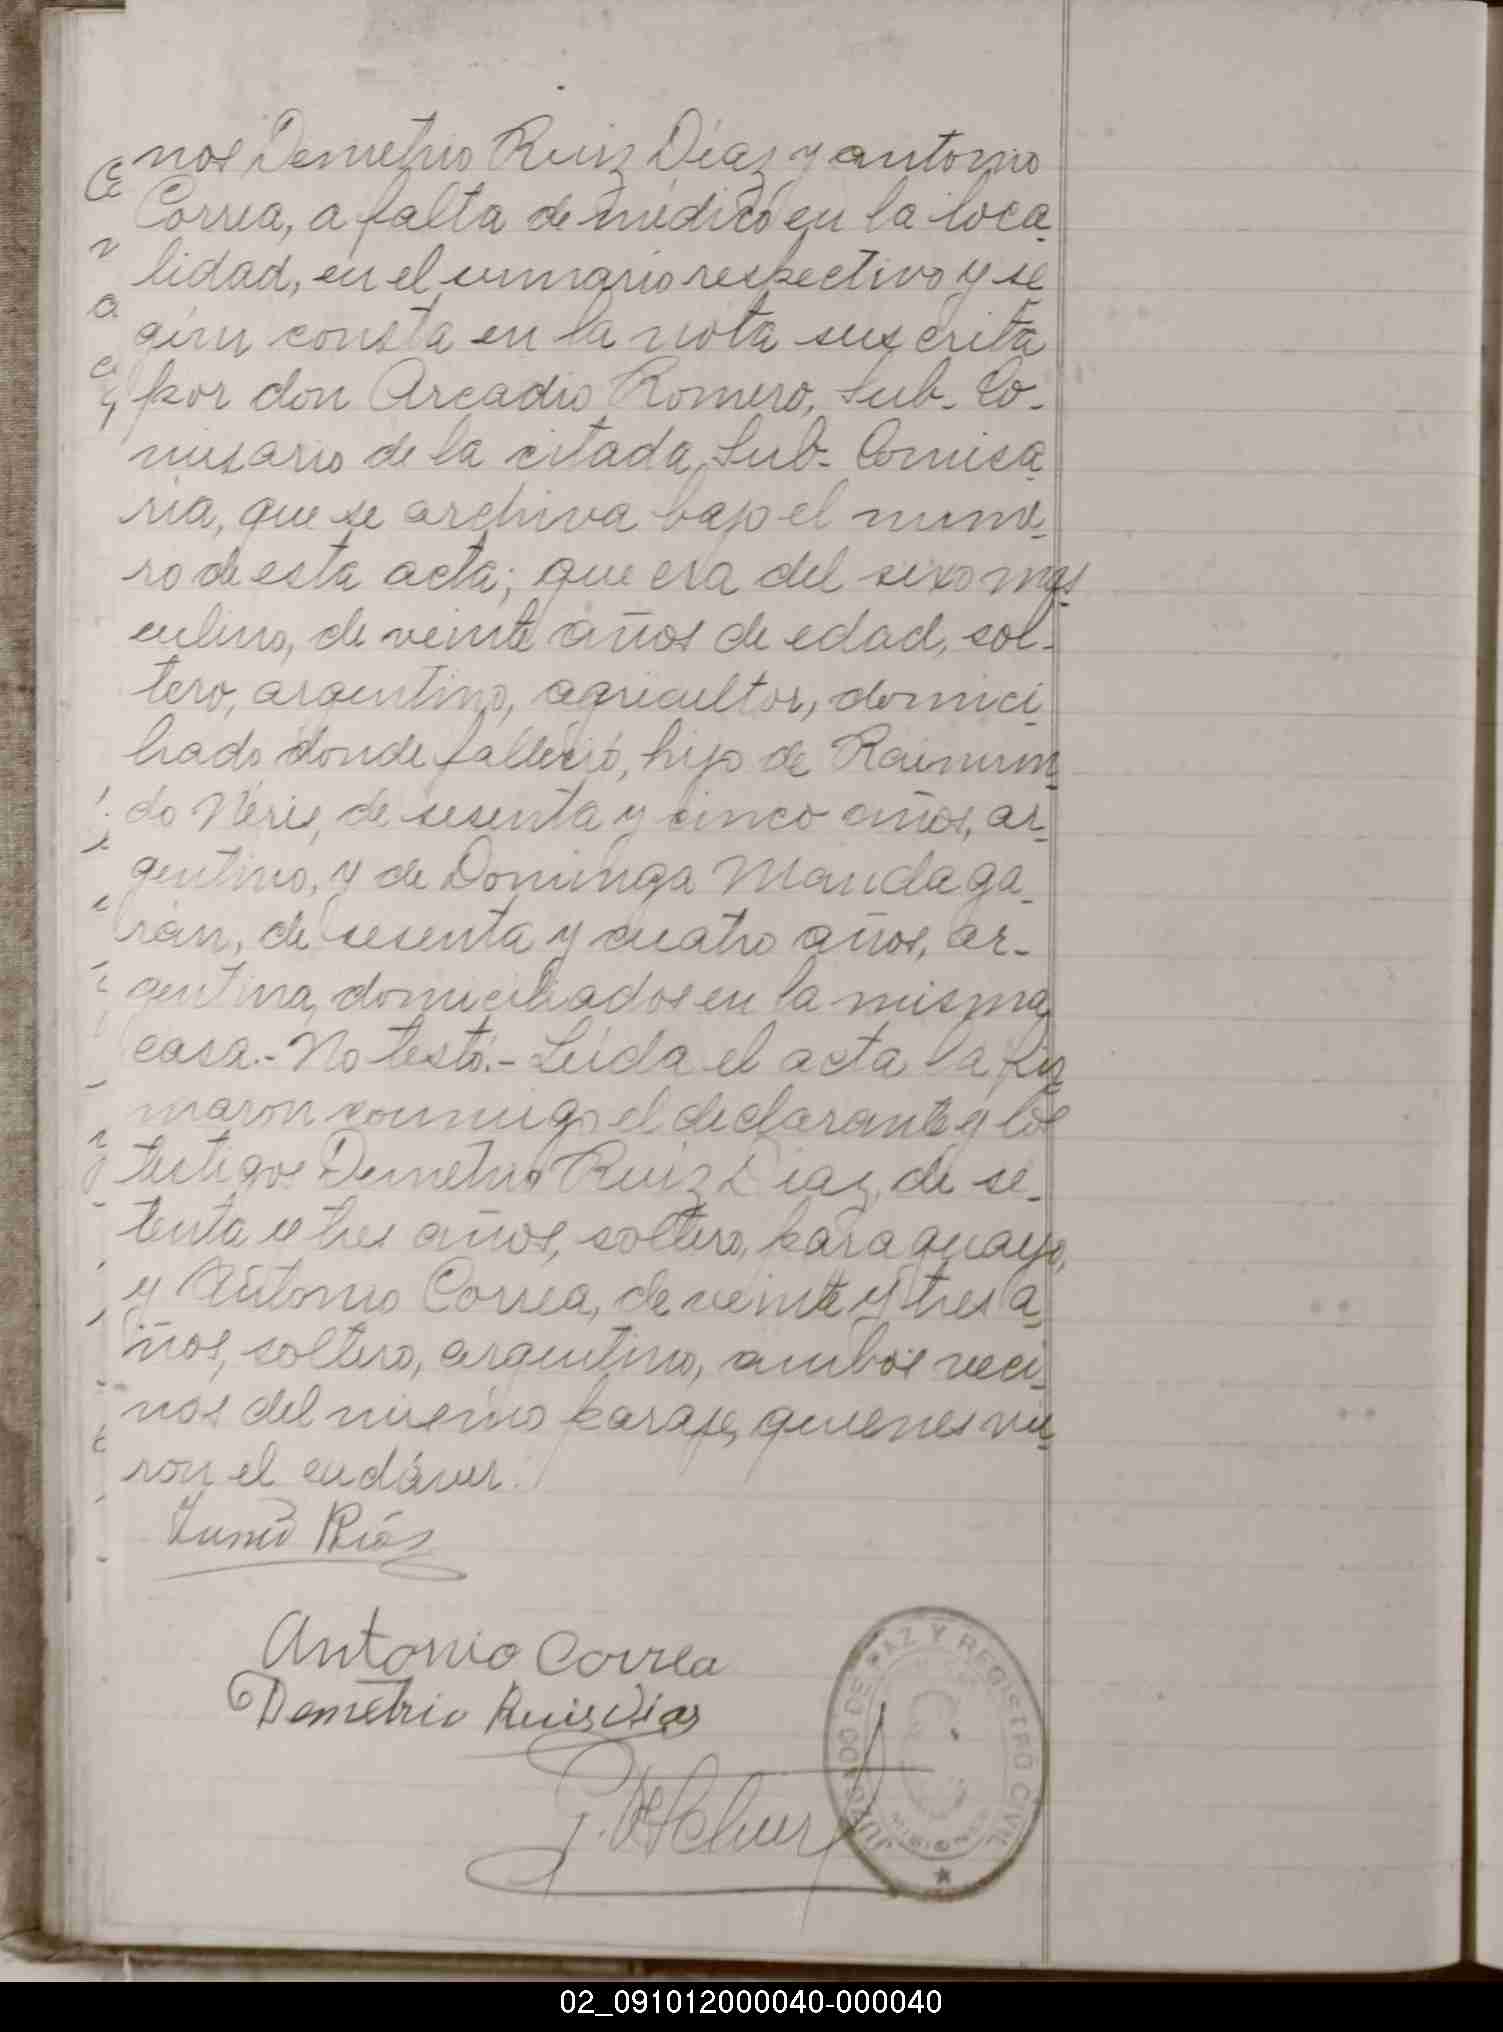 nos Demetrio Ruiz Díaz y antonio
Correa, a falta de médico en la loca-
lidad, en el sumario respectivo y se-
gún consta en la nota suscrita
por don Arcadio Romero, Sub-Co-
misario de la citada Sub-Comisa-
ría, que se archiva bajo el núme-
ro de esta acta; que era del sexo mas-
culino, de veinte años de edad, sol-
tero, argentino, agricultor, domici-
liado donde falleció, hijo de Raimun-
do Neris, de sesenta y cinco años, ar-
gentino, y de Dominga Mandaga-
rán, de sesenta y cuatro años, ar-
gentina, domiciliados en la misma
casa.- No testó.- Leída el acta la fir-
maron conmigo el declarante y los
testigos Demetrio Ruiz Diaz, de se-
tenta y tres años, soltero, paraguayo,
y Antonio Correa, de veinte y tres a-
ños, soltero, argentino, ambos veci-
nos del mismo paraje, quienes vie-
ron el cadáver.
Ríos
Antonio Correa
Demetrio Ruis Dias
JUZGADO DE PAZ Y REGISTRO CIVIL
MISIONES
02_091012000040-000040